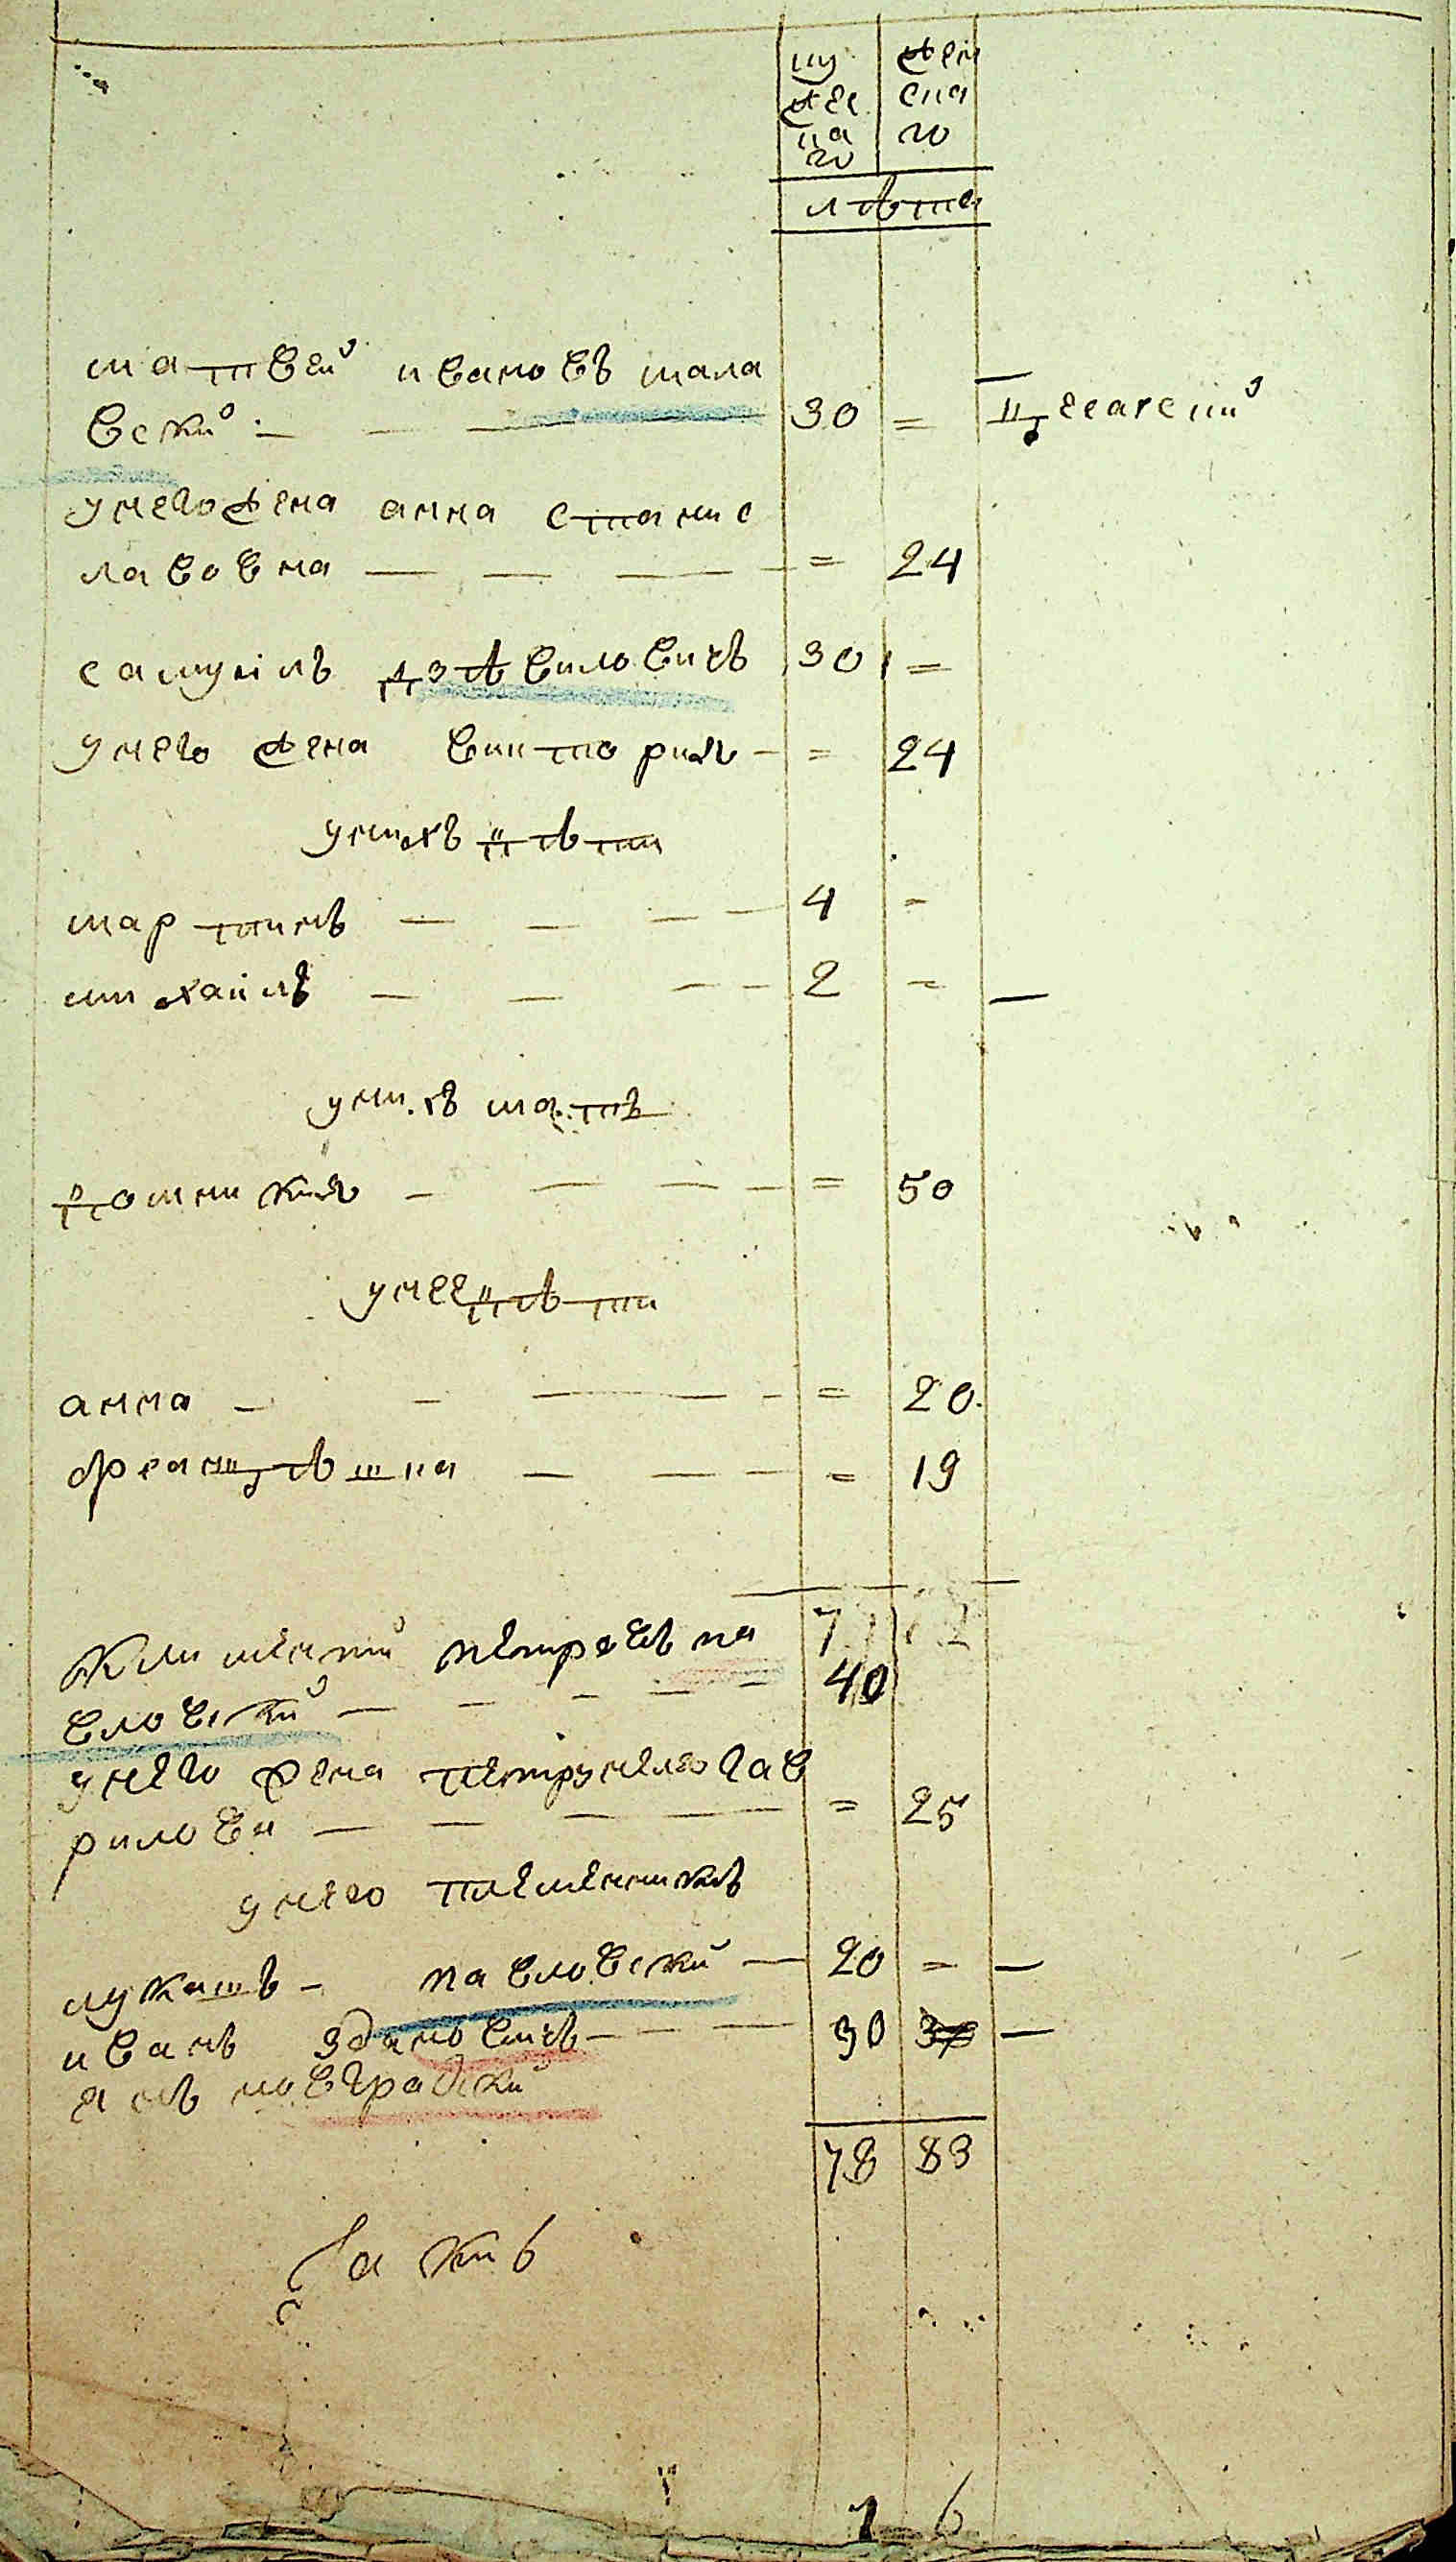 му
жес
ка
го
жен
ска
го
лѣта
матвей ивановъ мала
вский 30 = десарский
унего жена анна станис
лавовна = 24
самуилъ дзѣвиловичъ 30 =
унего жена викториѧ = 24
унихъ дѣти
мартинъ 4 =
михаилъ 2 =
унихъ мать
доминикиѧ = 50
унее дѣти
анна = 20
францѣшка = 19
климентий петровъ па
вловский 40
унего жена петрунелѧ гав
рилови = 25
унего племенникъ
лукашъ павловский 20 =
иванъ здановичъ 30
Янъ новградский
78 83
1 6